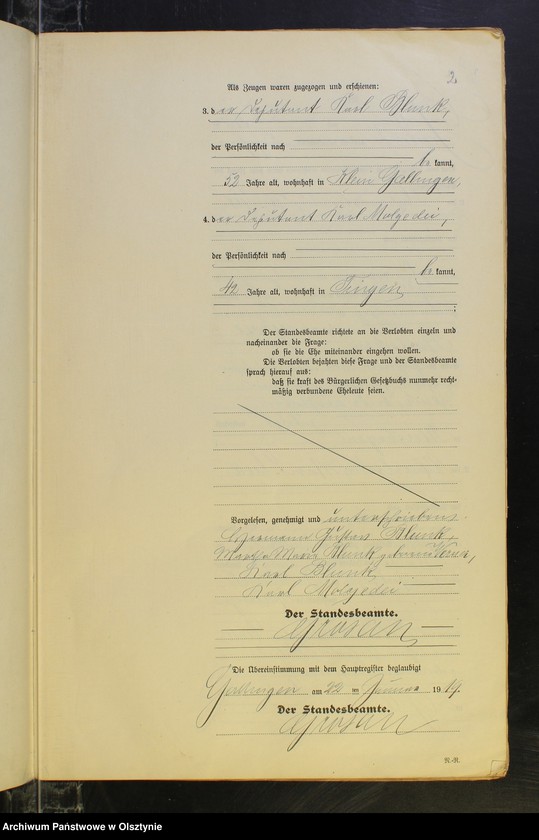 2.
Als Zeugen waren zugezogen und erschienen:
3. der Deputant Karl Blunk,
der Persönlichkeit nach
be kannt,
52 Jahre alt, wohnhaft in Klein Gallingen,
4. der Deputant Karl Molgedei,
der Persönlichkeit nach
be kannt,
Jahre alt, wohnhaft in
;
Der Standesbeamte richtete an die Verlobten einzeln und
nacheinander die Frage:
ob sie die Ehe miteinander eingehen wollen.
Die Verlobten bejahten diese Frage und der Standesbeamte
sprach hierauf aus:
daß sie kraft des Bürgerlichen Gesetzbuchs nunmehr recht-
mäßig verbundene Eheleute seien.
Vorgelesen, genehmigt und unterschrieben
Hermann Gustav Blunk,
Martha Maria Blunk geborene
Karl Blunk,
Karl Molgedei
Der Standesbeamte.
Die Übereinstimmung mit dem Hauptregister beglaubigt
Gallingen am 22 ten Januar 1914.
Der Standesbeamte.
R.-R.
Archiwum Państwowe w Olsztynie